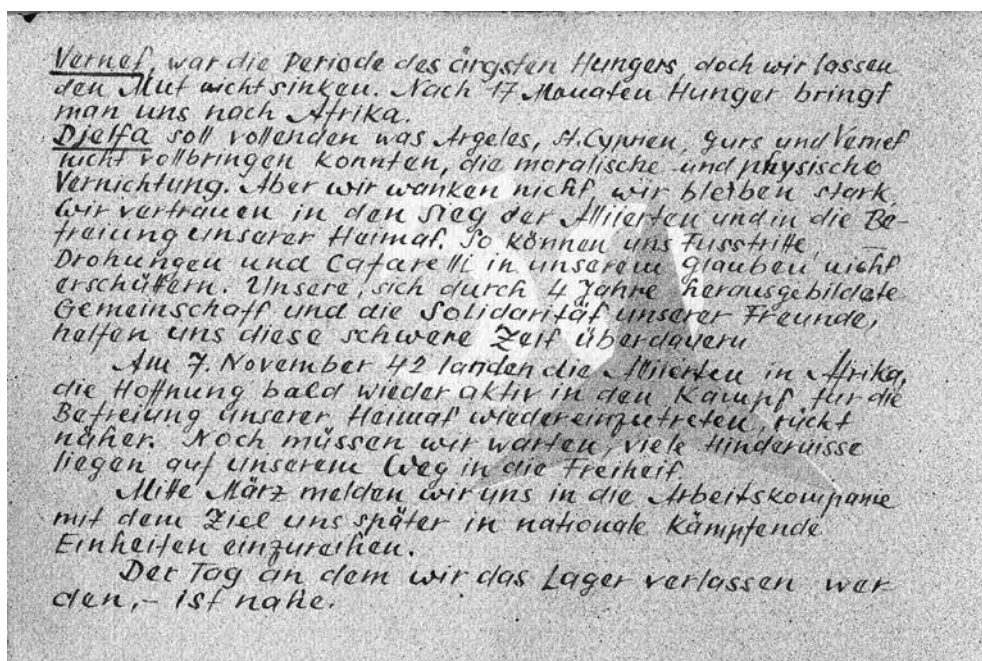 Vernet, war die Periode des ärgsten Hungers, doch wir lassen
den Mut nicht sinken. Nach 17 Monaten Hunger bringt
man uns nach Afrika.
Djelfa soll vollenden was Argeles, St. Cyprien, Gurs und Vernet
nicht vollbringen konnten, die moralische und physische
Vernichtung. Aber wir wanken nicht, wir bleiben stark,
wir vertrauen in den Sieg der Alliierten und in die Be-
freiung unserer Heimat. So können uns Fusstritte,
Drohungen und Cafarelli in unserem Glauben nicht
erschüttern. Unsere, sich durch 4 Jahre herausgebildete
Gemeinschaft und die Solidarität unserer Freunde,
helfen uns diese schwere Zeit überdauern
Am 7. November 42 landen die Alliierten in Afrika,
die Hoffnung bald wieder aktiv in den Kampf für die
Befreiung unserer Heimat wiedereinzutreten, rückt
näher. Noch müssen wir warten, viele Hindernisse
liegen auf unserem Weg in die Freiheit.
Mitte März melden wir uns in die Arbeitskompanie
mit dem Ziel uns später in nationale kämpfende
Einheiten einzureihen.
Der Tag an dem wir das Lager verlassen wer-
den,- ist nahe.